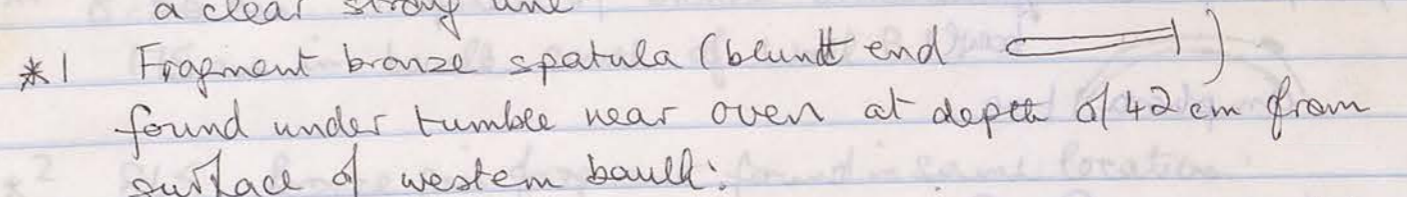 a clear strong line
*1 Fragment bronze spatula (blunt end )
found under tumble near oven at depth of 42 cm from
surface of western baulk: